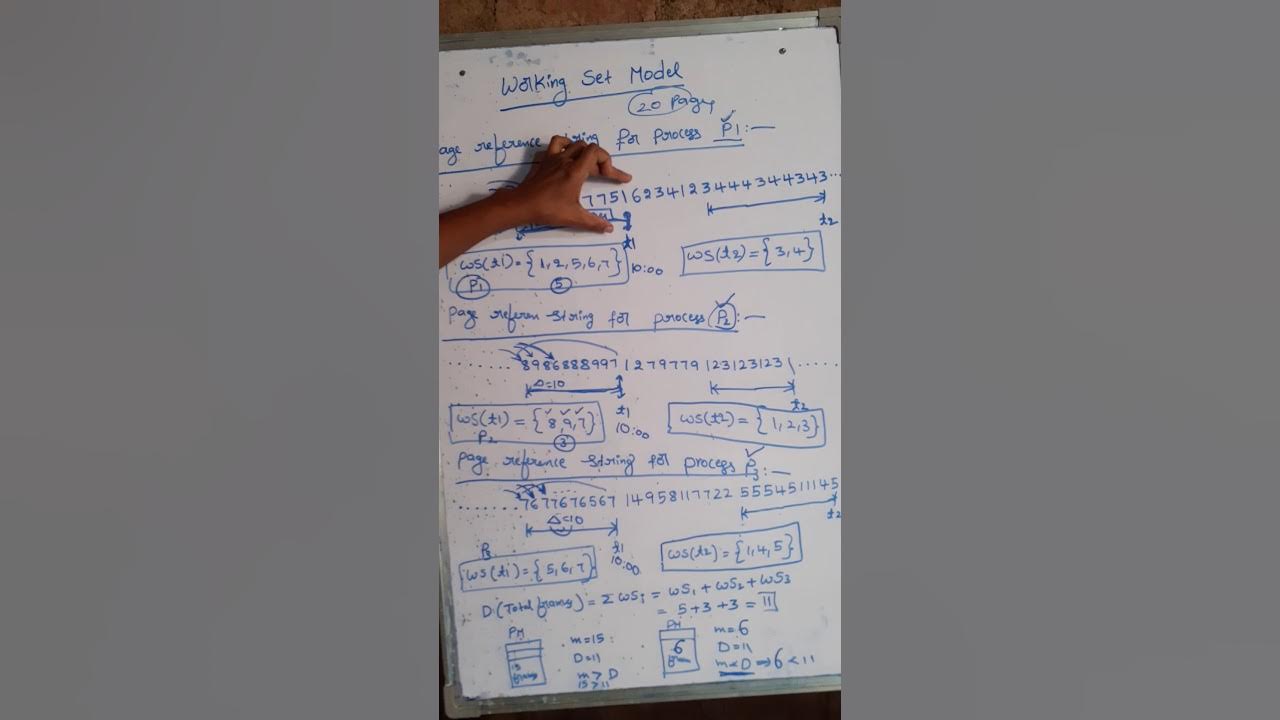 Working Set Model
20 Pages
age reference string for process P1:—
7751623412344434443...
t1
t2
WS(t1) = {1,2,5,6,7}
10:00
WS(t2) = {3,4}
P1
5
page referen string for process P2:—
........8986888997 1279779 123123123 \......
Δ=10
t1
t2
WS(t1) = {8,9,7}
10:00
WS(t2) = {1,2,3}
P2
3
page reference string for process P3:—
.......7677676567 14958117722 5554511145
Δ=10
t1
t2
P3
10:00
WS(t1) = {5,6,7}
WS(t2) = {1,4,5}
D(Total frames) = Σ WSi = WS1 + WS2 + WS3
= 5+3+3 = 11
PM
m=15
D=11
m > D
15 > 11
15
PM
6
m=6
D=11
m<D ⇒ 6<11